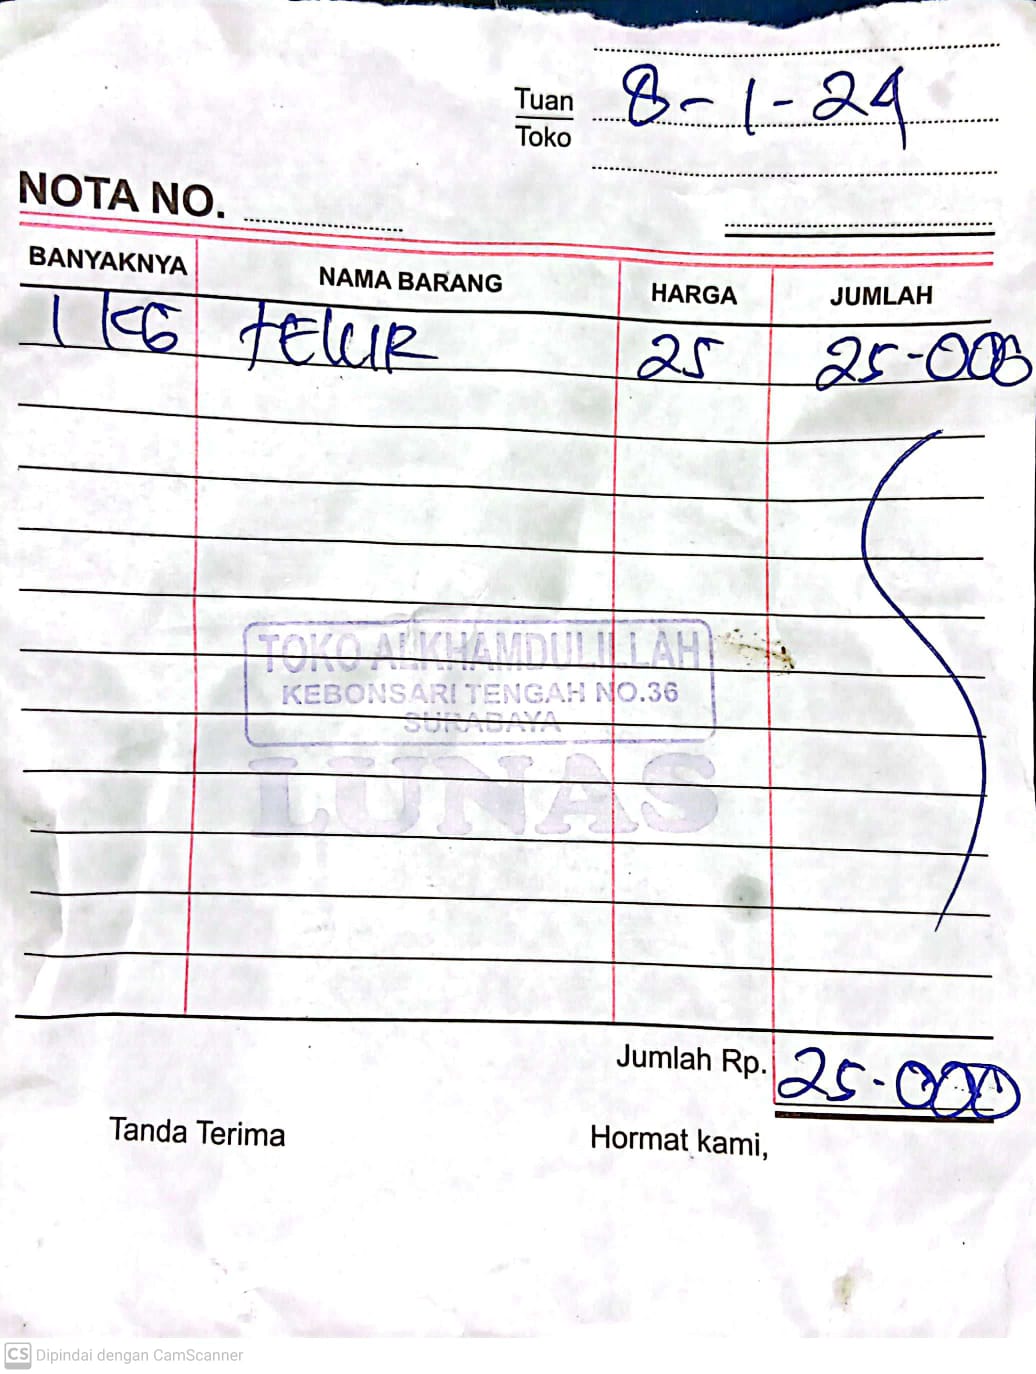 8-1-24
Tuan
Toko
NOTA NO.
BANYAKNYA NAMA BARANG HARGA JUMLAH
1 KG TELUR 25 25-000
TOKO ALKHAMDULILLAH
KEBONSARI TENGAH NO.36
SURABAYA
LUNAS
Jumlah Rp. 25-000
Tanda Terima Hormat kami,
CS Dipindai dengan CamScanner